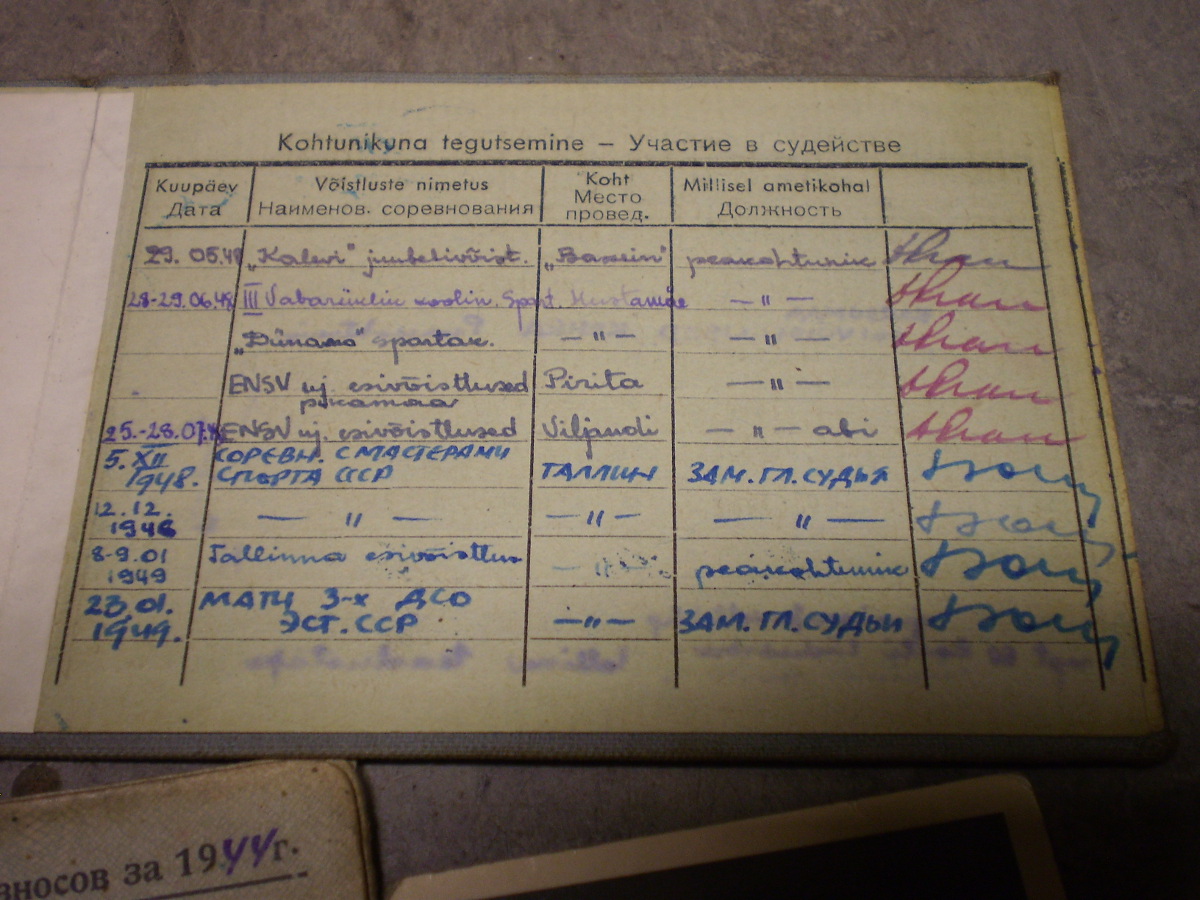 Kohtunikuna tegutsemine – Участие в судействе
Kuupäev Võistluste nimetus Koht Millisel ametikohal
Дата Наименов. соревнования Место провед. Должность
29. 05.48 „Kalevi" juubelivõist. „Bassein" peakohtunik
28-29.06.48 III Vabariiklik koolin. Spart. Mustamäe — " —
„Dünamo" spartak. — " — — " —
ENSV uj. esivõistlused Pirita — " —
pikamaa
25.-28.07.48 ENSV uj. esivõistlused Viljandi — " — abi
5. XII СОРЕВН. С МАСТЕРАМИ
1948. СПОРТА СССР ТАЛЛИН ЗАМ. ГЛ. СУДЬЯ
12.12. — " — — " — — " —
1948
8-9.01 Tallinna esivõistlus — " — peakohtunik
1949
23.01. МАТЧ 3-х ДСО
1949. ЭСТ. ССР — " — ЗАМ. ГЛ. СУДЬИ
взносов за 1944 г.